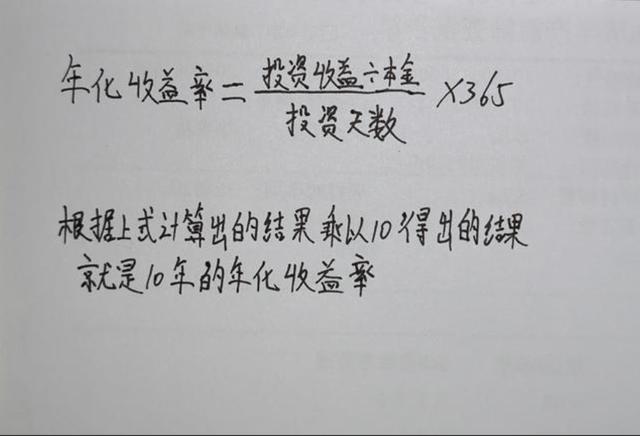 年化收益率=投资收益÷本金/投资天数×365
根据上式计算出的结果乘以10得出的结果
就是10年的年化收益率